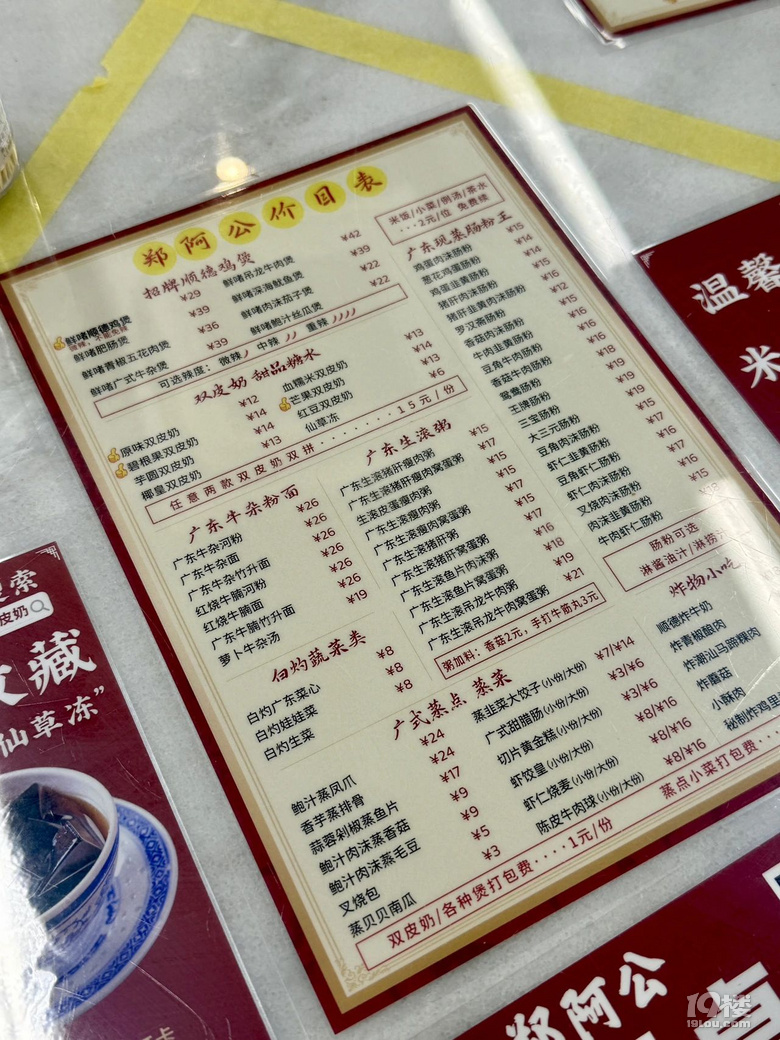 郑阿公价目表
米饭/小菜/例汤/茶水
···2元/位 免费续
招牌顺德鸡煲
鲜啫顺德鸡煲 ¥29
微辣，不能免辣
鲜啫肥肠煲 ¥39
鲜啫青椒五花肉煲 ¥36
鲜啫广式牛杂煲 ¥39
鲜啫吊龙牛肉煲 ¥42
鲜啫深海鱿鱼煲 ¥39
鲜啫肉沫茄子煲 ¥22
鲜啫鲍汁丝瓜煲 ¥22
可选辣度： 微辣 中辣 重辣
双皮奶 甜品糖水
原味双皮奶 ¥12
碧根果双皮奶 ¥14
芋圆双皮奶 ¥14
椰皇双皮奶 ¥13
血糯米双皮奶 ¥13
芒果双皮奶 ¥14
红豆双皮奶 ¥13
仙草冻 ¥6
任意两款双皮奶双拼········15元/份
广东牛杂粉面
广东牛杂河粉 ¥26
广东牛杂面 ¥26
广东牛杂竹升面 ¥26
红烧牛腩河粉 ¥26
红烧牛腩面 ¥26
广东牛腩竹升面 ¥26
萝卜牛杂汤 ¥19
白灼蔬菜类
白灼广东菜心 ¥8
白灼娃娃菜 ¥8
白灼生菜 ¥8
广东生滚粥
广东生滚猪肝瘦肉粥 ¥15
广东生滚猪肝瘦肉窝蛋粥 ¥17
生滚皮蛋瘦肉粥 ¥15
广东生滚瘦肉粥 ¥15
广东生滚瘦肉窝蛋粥 ¥17
广东生滚猪肝粥 ¥15
广东生滚猪肝窝蛋粥 ¥17
广东生滚鱼片肉沫粥 ¥16
广东生滚鱼片窝蛋粥 ¥18
广东生滚吊龙牛肉粥 ¥19
广东生滚吊龙牛肉窝蛋粥 ¥21
粥加料：香菇2元，手打牛筋丸3元
广东现蒸肠粉王
鸡蛋肉沫肠粉 ¥15
葱花鸡蛋肠粉 ¥14
鸡蛋韭黄肠粉 ¥14
猪肝肉沫肠粉 ¥15
猪肝韭黄肉沫肠粉 ¥16
罗汉斋肠粉 ¥12
香菇肉沫肠粉 ¥15
牛肉韭黄肠粉
豆角牛肉肠粉
香菇牛肉肠粉
鸳鸯肠粉
王牌肠粉
三宝肠粉
大三元肠粉
豆角肉沫肠粉
虾仁韭黄肠粉
豆角虾仁肠粉
虾仁肉沫肠粉
叉烧肉沫肠粉
肉沫韭黄肠粉
牛肉虾仁肠粉
肠粉可选
淋酱油汁/淋捞
炸物小吃
顺德炸牛奶
炸青椒酿肉
炸潮汕马蹄粿肉
炸蘑菇
小酥肉
秘制炸鸡里
广式蒸点 蒸菜
鲍汁蒸凤爪 ¥24
香芋蒸排骨 ¥24
蒜蓉剁椒蒸鱼片 ¥17
鲍汁肉沫蒸香菇 ¥9
鲍汁肉沫蒸毛豆 ¥9
叉烧包 ¥5
蒸贝贝南瓜 ¥3
蒸韭菜大饺子(小份/大份) ¥7/¥14
广式甜腊肠(小份/大份) ¥3/¥6
切片黄金糕(小份/大份) ¥3/¥6
虾饺皇(小份/大份) ¥8/¥16
虾仁烧麦(小份/大份) ¥8/¥16
陈皮牛肉球(小份/大份) ¥8/¥16
双皮奶/各种煲打包费····1元/份
蒸点小菜打包费···
温馨
米
索
皮奶
收藏
仙草冻”
郑阿公
19楼
19lou.com